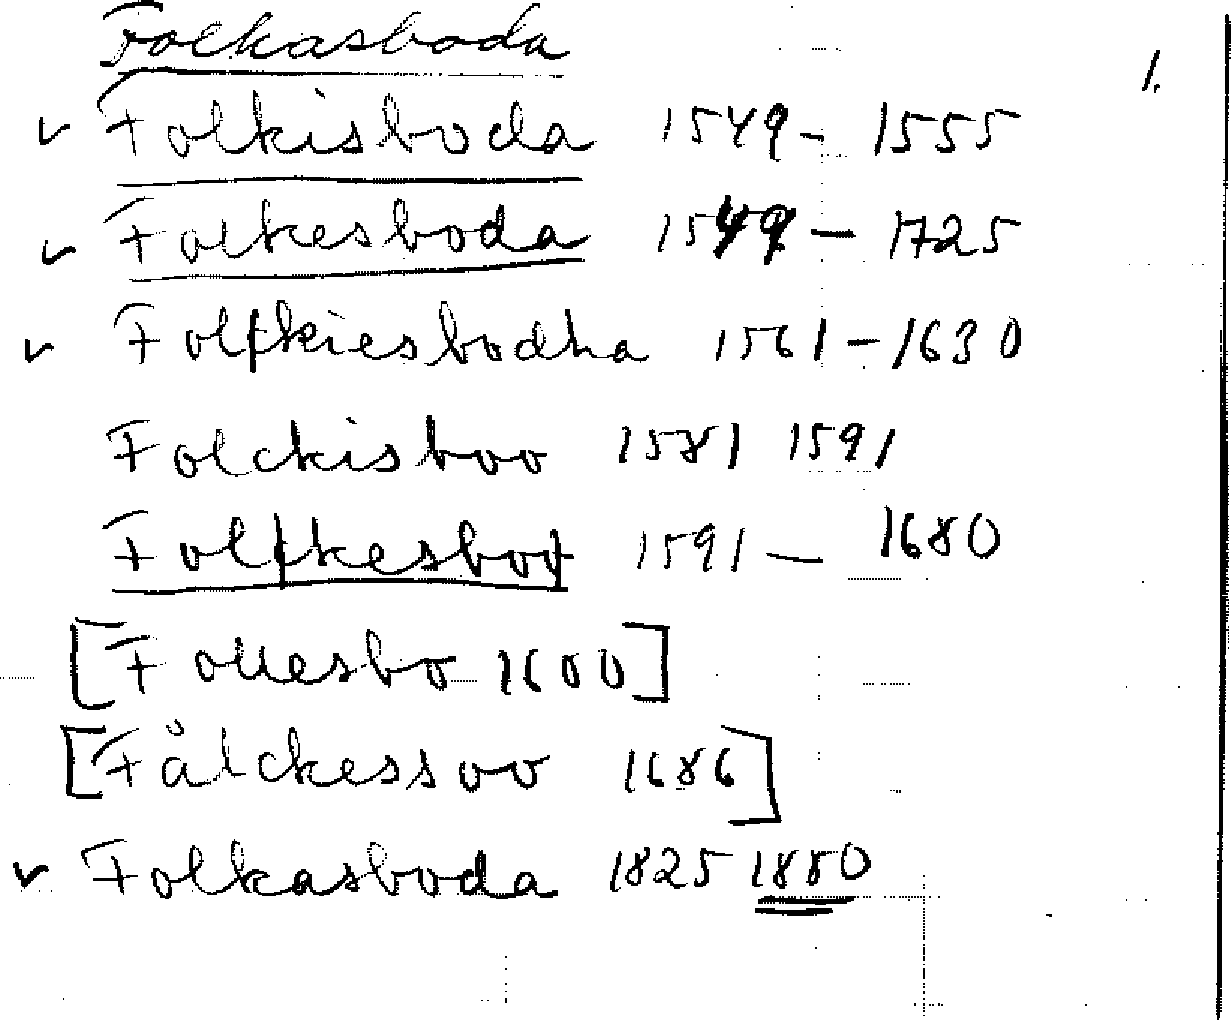 Folkasboda
1.
✓ Folkisboda 1549 - 1555
✓ Folkesboda 1549 - 1725
✓ Fol|kiesbodha 1561 - 1630
Folckisboo 1581 1591
Fol|kesbo| 1591 - 1680
[Follesbo 1600]
[Fålckessoo 1686]
✓ Folkasboda 1825 1880